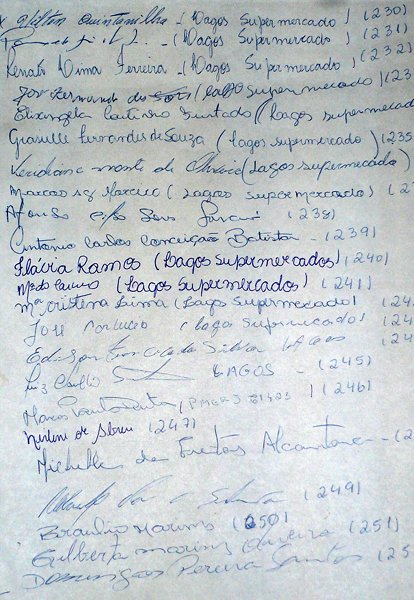 Hilton Quintanilha - (Lagos Supermercado) (230)
- (Lagos Supermercado) (231)
Renato Lima Ferreira - (Lagos Supermercado) (232)
José (Lagos Supermercado) (23
Elisangela Coutinho Furtado (Lagos Supermercado
Grasielle Fernandes de Souza (lagos supermercado) (235
monte de Oliveira (Lagos supermercado)
Marcos (Lagos supermercado) (2
Afonso (238)
Antonio Carlos Conceição Batista - (239)
Flávia Ramos (Lagos Supermercados) (240)
(Lagos Supermercados) (241)
Mª Cristina Lima (Lagos Supermercado) (24
José (lagos supermercados) (24
Edilson da Silva Lagos (24
Luiz LAGOS - (245)
Marco (246)
de Abreu (247)
Michelle de Freitas Alcantara - (2
(249)
Braulio Marins (250)
Gilberto Marins Oliveira (251)
Domingos Pereira Santos (25